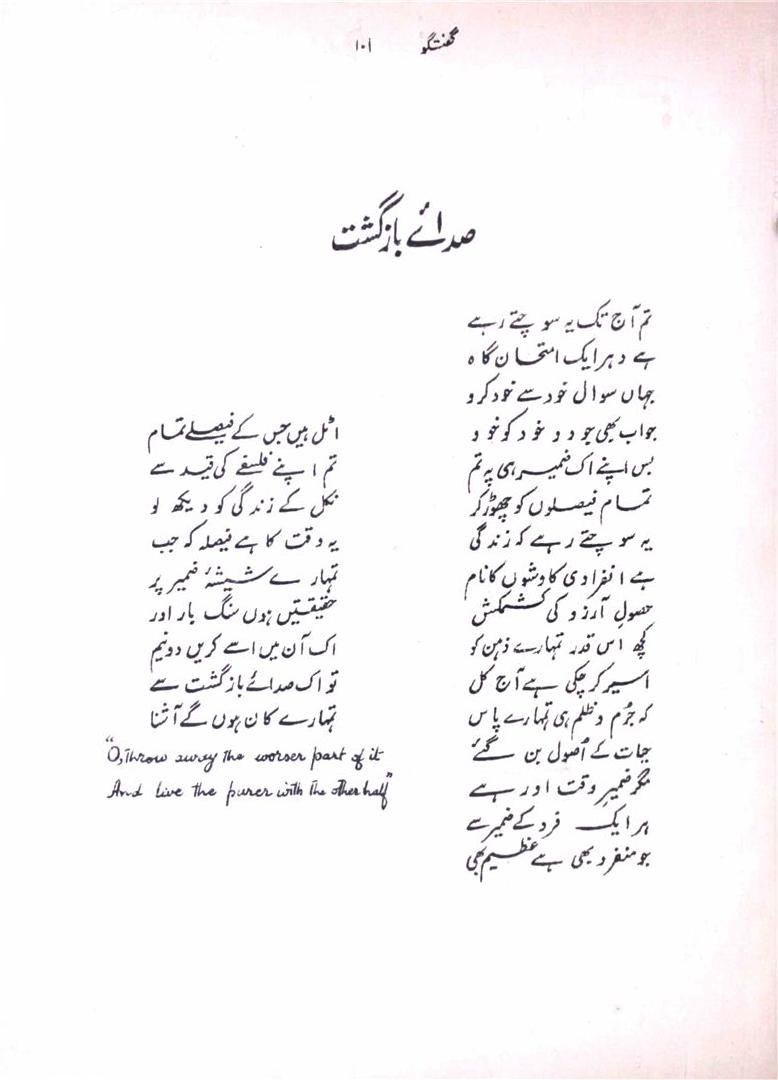 گفتگو ۱۰۱
صدائے بازگشت
تم آج تک یہ سوچتے رہے
ہے دہر ایک امتحان گاہ
جہاں سوال خود سے خود کرو
جواب بھی جو دو خود کو خود
بس اپنے اک ضمیر ہی پہ تم
تمام فیصلوں کو چھوڑ کر
یہ سوچتے رہے کہ زندگی
ہے انفرادی کاوشوں کا نام
حصولِ آرزو کی کشمکش
کچھ اس قدر تمہارے ذہن کو
اسیر کر چکی ہے آج کل
کہ جُرم و ظلم ہی تمہارے پاس
نجات کے اُصول بن گئے
مگر ضمیرِ وقت اور ہے
ہر ایک فرد کے ضمیر سے
جو منفرد بھی ہے عظیم بھی
اٹل ہیں جس کے فیصلے تمام
تم اپنے فلسفے کی قید سے
نکل کے زندگی کو دیکھ لو
یہ وقت کا ہے فیصلہ کہ جب
تمہارے شیشۂ ضمیر پر
حقیقتیں ہوں سنگ بار اور
اک آن میں اسے کریں دو نیم
تو اک صدائے بازگشت سے
تمہارے کان ہوں گے آشنا
"O, throw away the worser part of it
And live the purer with the other half"